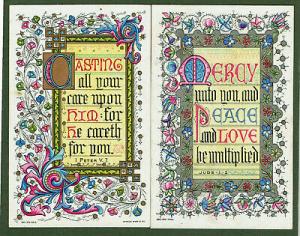 CASTING
all your
care upon
HIM: for
He careth
for you.
I PETER V. 7
MERCY
unto you, and
PEACE
and LOVE
be multiplied
JUDE 1:2